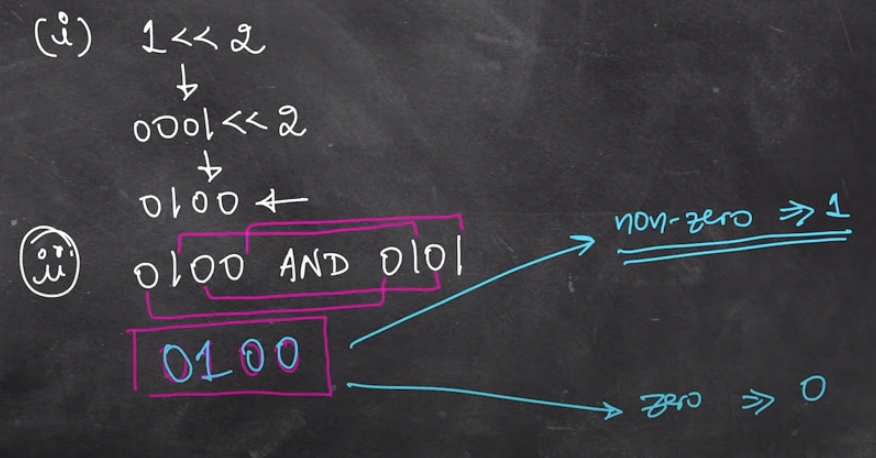 (i) 1 << 2
0001 << 2
0100 ←
(ii) 0100 AND 0101
0100
non-zero ⇒ 1
zero ⇒ 0